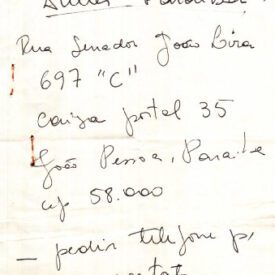 Rua Senador João Lira
697 "C"
Caixa postal 35
João Pessoa, Paraíba
cep 58.000
— pedir telefone p/